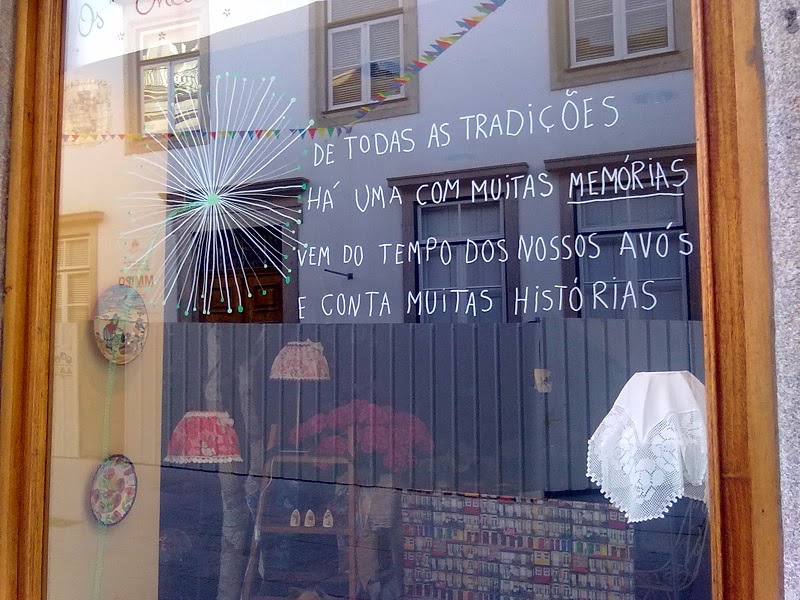 Os
DE TODAS AS TRADIÇÕES
HÁ UMA COM MUITAS MEMÓRIAS
VEM DO TEMPO DOS NOSSOS AVÓS
E CONTA MUITAS HISTÓRIAS